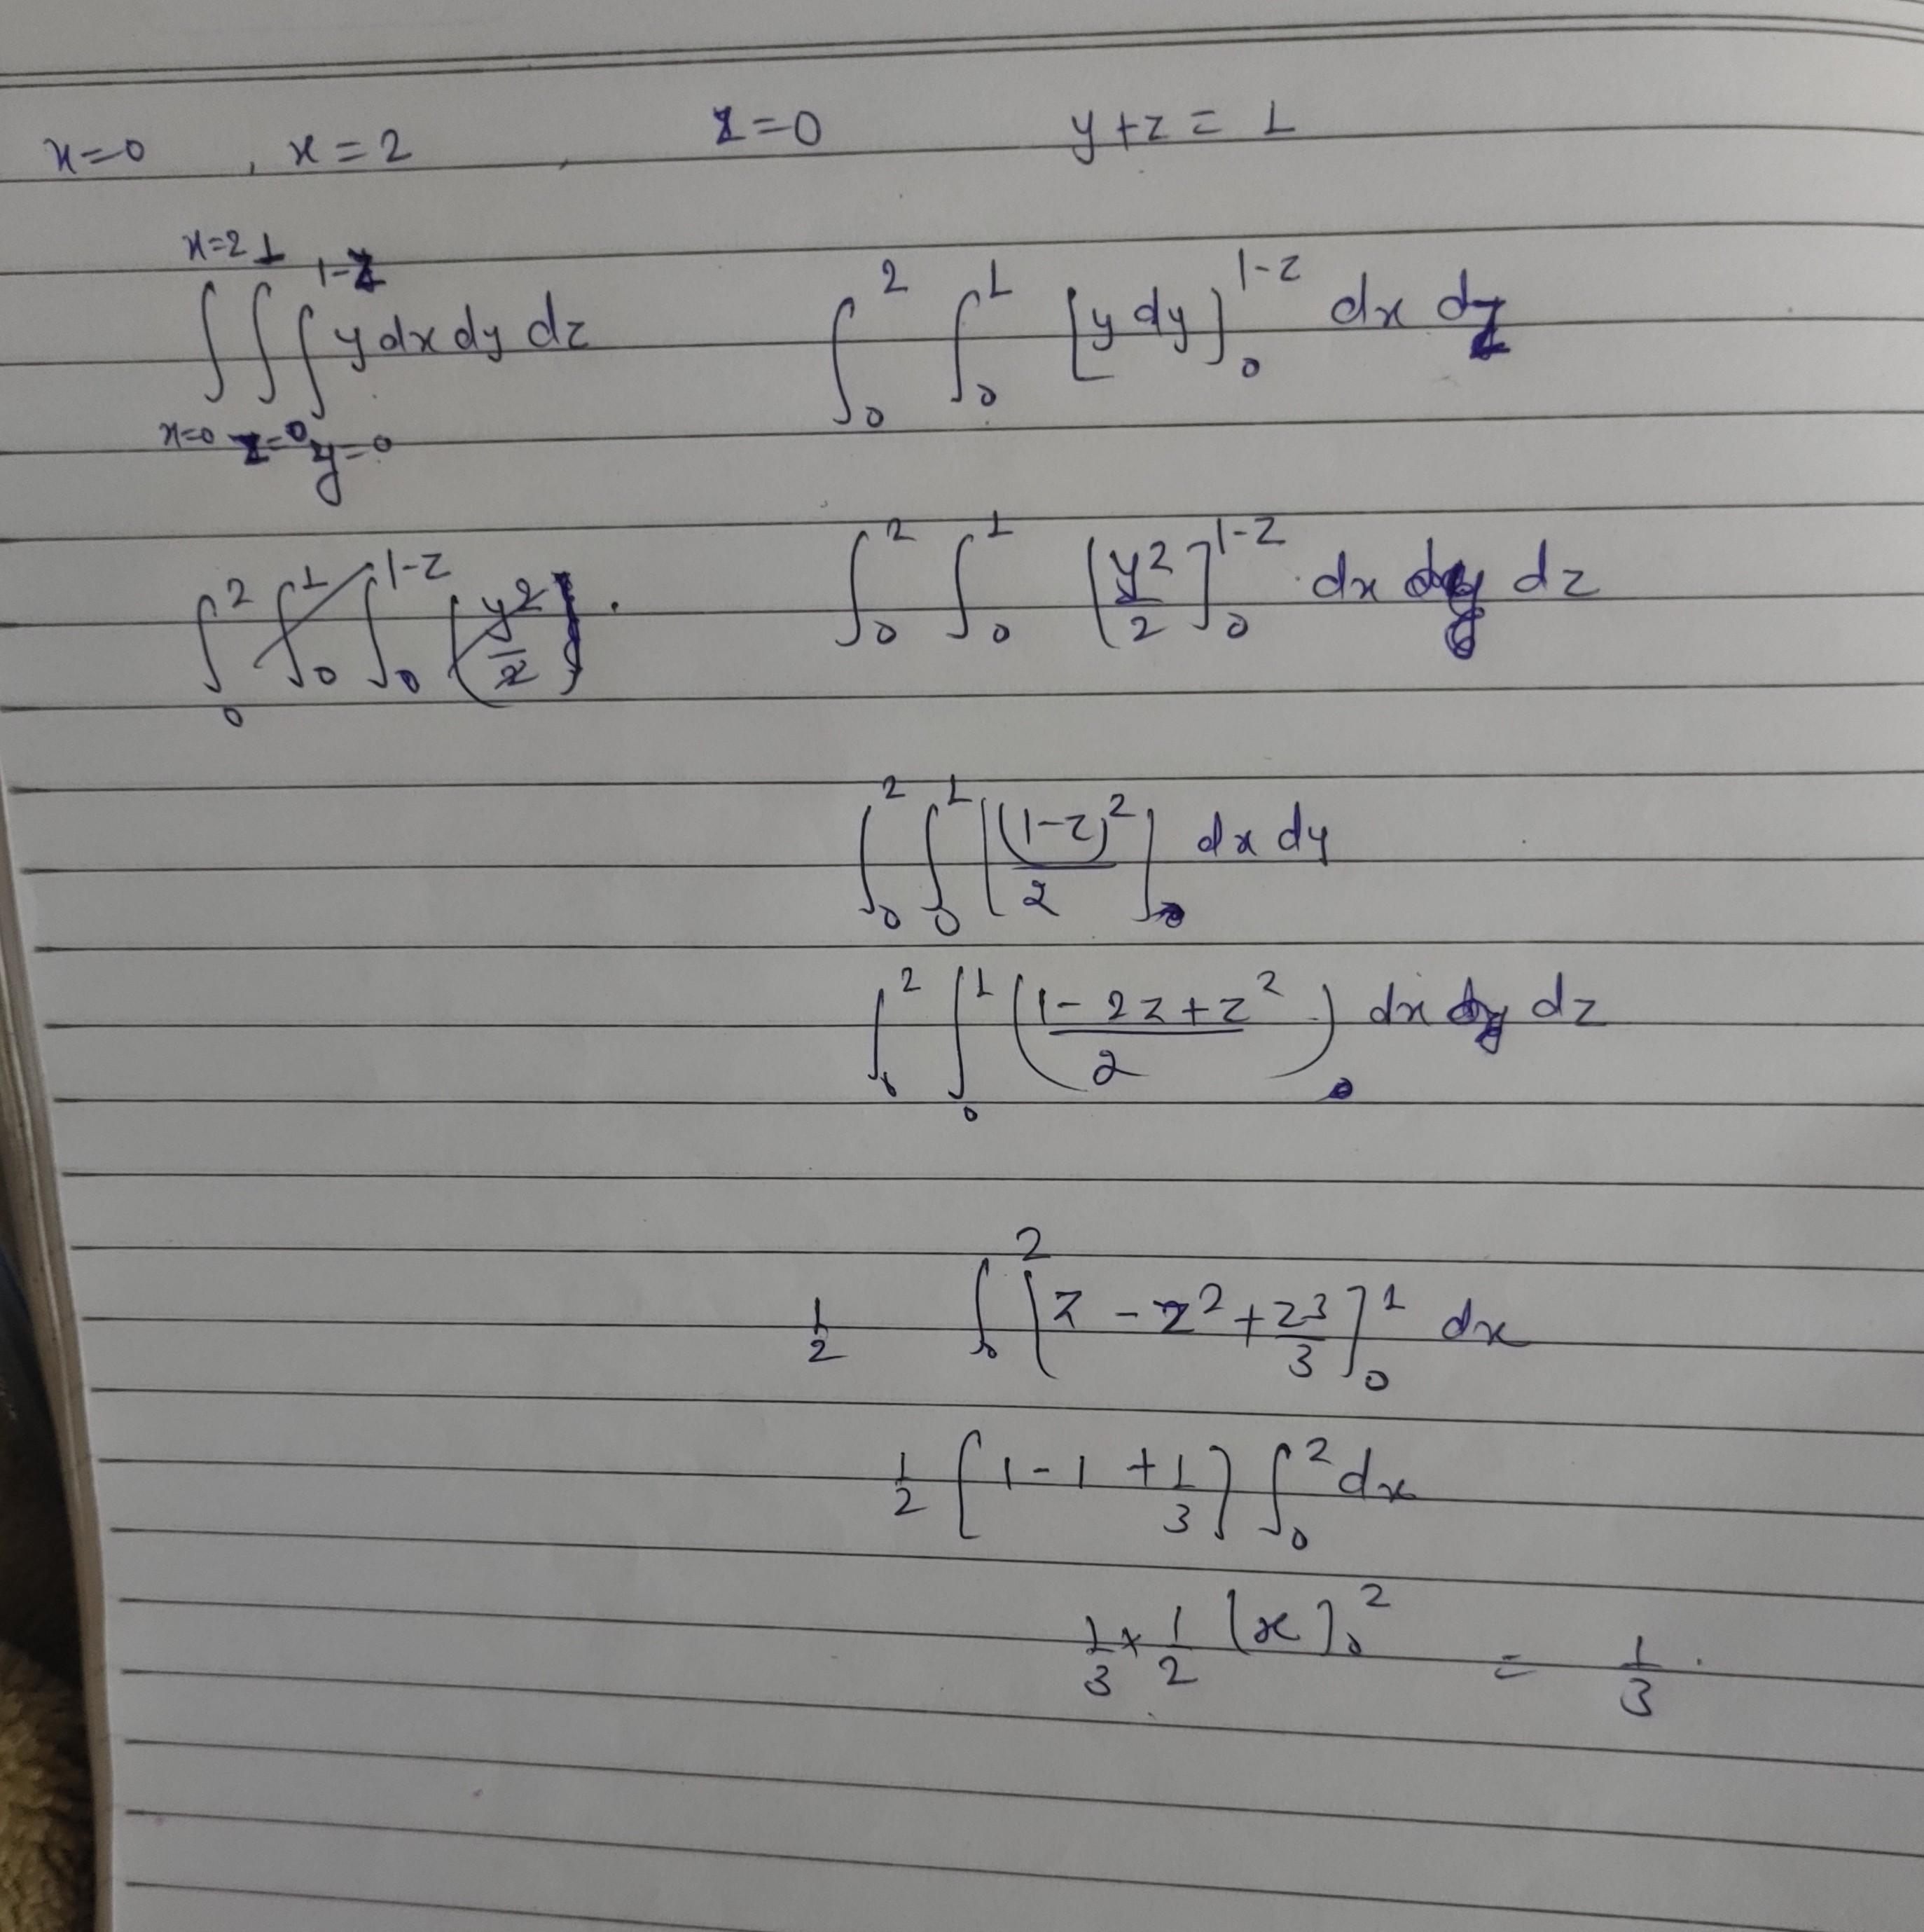 x=0 , x=2 , z=0 y+z=1
∫_{x=0}^{x=2} ∫_{z=0}^{1} ∫_{y=0}^{1-z} y dx dy dz ∫_0^2 ∫_0^1 [y dy]_0^{1-z} dx dz
∫_0^2 ∫_0^1 ∫_0^{1-z} [y^2/2] . ∫_0^2 ∫_0^1 [y^2/2]_0^{1-z} dx dz
∫_0^2 ∫_0^1 [(1-z)^2/2] dx dy
∫_0^2 ∫_0^1 ((1-2z+z^2)/2) dx dy dz
1/2 ∫_0^2 [z - z^2 + z^3/3]_0^1 dx
1/2 [1-1+1/3] ∫_0^2 dx
1/3 × 1/2 [x]_0^2 = 1/3 .